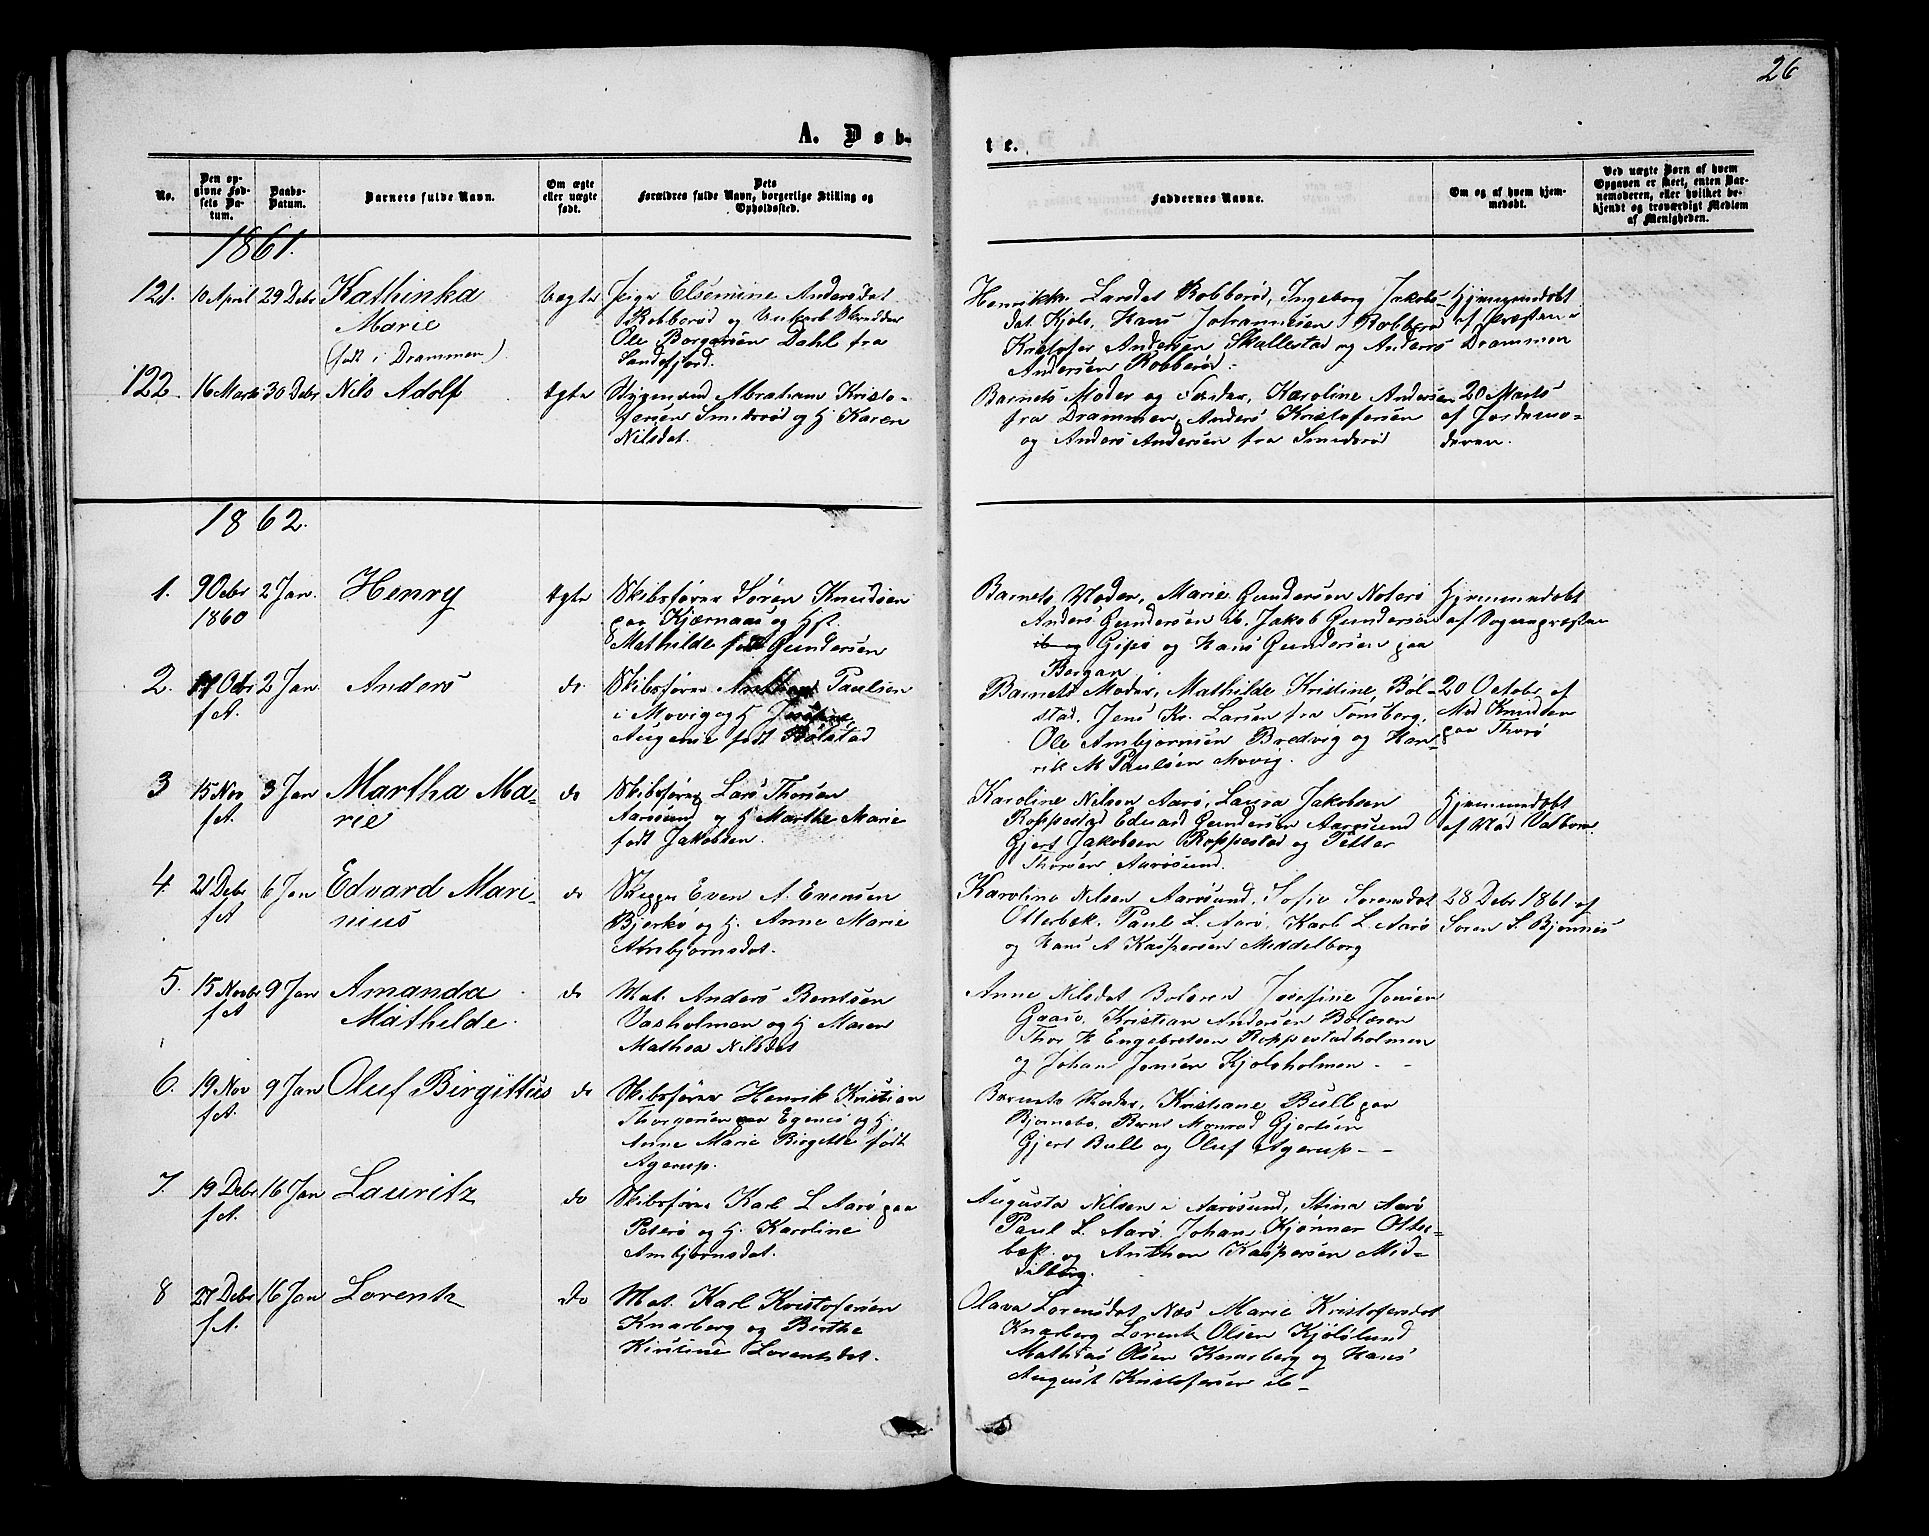 26
A. Døb-
te.
No.
Den op-
givne Fød-
sels Da-
tum.
Daabs-
Datum.
Barnets fulde Navn.
Om ægte
eller uægte
født.
Dets
Forældres fulde Navn, borgerlige Stilling og
Opholdssted.
Faddernes Navne.
Om og af hvem hjem-
medøbt.
Ved uægte Børn af hvem
Opgaven er skeet, enten Bar-
nemoderen, eller hvilket be-
kjendt og troværdigt Medlem
af Menigheden.
1861.
121. 10 April 29 Debr Kathinka
Marie
(født i Drammen).
Uægte
Pige Elsemine Andersdat
Robberød og Unkarl Skredder
Ole Borgersen Dahl fra
Sandefjord.
Henrikke Larsdat Robberød, Ingeborg Jakobs-
dat Kjøls, Hans Johannesen Robberød
Kristofer Andersen Skallestad og Anders
Andersen Robberød.
Hjemmedøbt
af Præsten i
Drammen
122. 16 Marts 30 Debr Nils Adolf
Ægte
Styrmand Abraham Kristo-
fersen Smidsrød og H. Karen
Nilsdat.
Barnets Moder og Fader, Karoline Andersen
fra Drammen, Anders Kristofersen
og Anders Andersen fra Smidsrød
20 Marts
af Jordemo-
deren.
1862.
1. 9 Octbr
1860
2 Jan. Henry
Ægte
Skibsfører Søren Knudsen
paa Kjærnaas og H.
Mathilde født Gundersen
Barnets Moder, Marie Gundersen Noterø
Anders Gundersen ib. Jakob Gundersen
ib og Gipø og Hans Gundersen paa
Bergan.
Hjemmedøbt
af Sognepræsten
2. 17 Octbr
f. A.
2 Jan Anders
do.
Skibsfører Paulsen
i Movig og H. Josefine
Augenie født Bølstad
Barnets Moder, Mathilde Kristine Bøl-
stad, Jens Kr. Larsen fra Tønsberg,
Ole Ambjørnsen Bredvig og Hen-
rik M Paulsen Movig.
20 Octobr. af
Md Knudsen
paa Thorø
3 15 Nov
f. A.
3 Jan Martha Ma-
rie
do
Skibsfører Lars Thorsen
Aarøsund og H. Marthe Marie
født Jakobsen.
Karoline Nilsen Aarø, Laura Jakobsen
Roppestad Edvard Gundersen Aarøsund
Gjert Jakobsen Roppestad og Petter
Thorsen Aarøsund.
Hjemmedøbt
af Mad Valborn
4. 21 Debr
f. A
6 Jan Edvard Mari-
nius
do
Skipper Even A. Evensen
Bjerkø og H. Anne Marie
Ambjørnsdat.
Karoline Nilsen Aarøsund, Sofie Sørensdat
Otterbek. Paul L. Aarø, Karl L. Aarø
og Hans A Kaspersen Middelborg
28 Debr 1861 af
Søren S. Bjønnes
5. 15 Novbr
f. A
9 Jan Amanda
Mathilde.
do
Mat. Anders Bentsen
Vasholmen og H. Maren
Mathea Nilsdat
Anne Nilsdat Bolæren Josefine Jonsen
Gaasø, Kristian Andersen Bolæren
Thor H Engebretsen Roppestadholmen
og Johan Jonsen Kjølsholmen - -
6. 19 Nov
f. A.
9 Jan Oluf Birgittus
do
Skibsfører Henrik Kristian
Thorgersen paa Egenes og H.
Anne Marie Birgitte født
Agerup.
Barnets Moder, Kristiane Bull paa
Bjørnebo, Bernt Monrad Gjertsen
Gjert Bull og Oluf Agerup - -
7. 19 Debr
f. A.
16 Jan Lauritz
do
Skibsfører Karl L Aarø paa
Peterø og H. Karoline
Ambjørnsdat.
Augusta Nilsen i Aarøsund, Stina Aarø
Paul L. Aarø, Johan Kjønner Otter-
bek og Anthon Kaspersen Mid-
delborg.
8 27 Debr
f. A.
16 Jan Lorentz
do
Mat. Karl Kristofersen
Knarberg og Birthe
Kirstine Lorentzdat.
Olava Lorensdat Næs Marie Kristofersdat
Knarberg Lorentz Olsen Kjølølund
Mathias Olsen Knarberg og Hans
August Kristofersen ib -